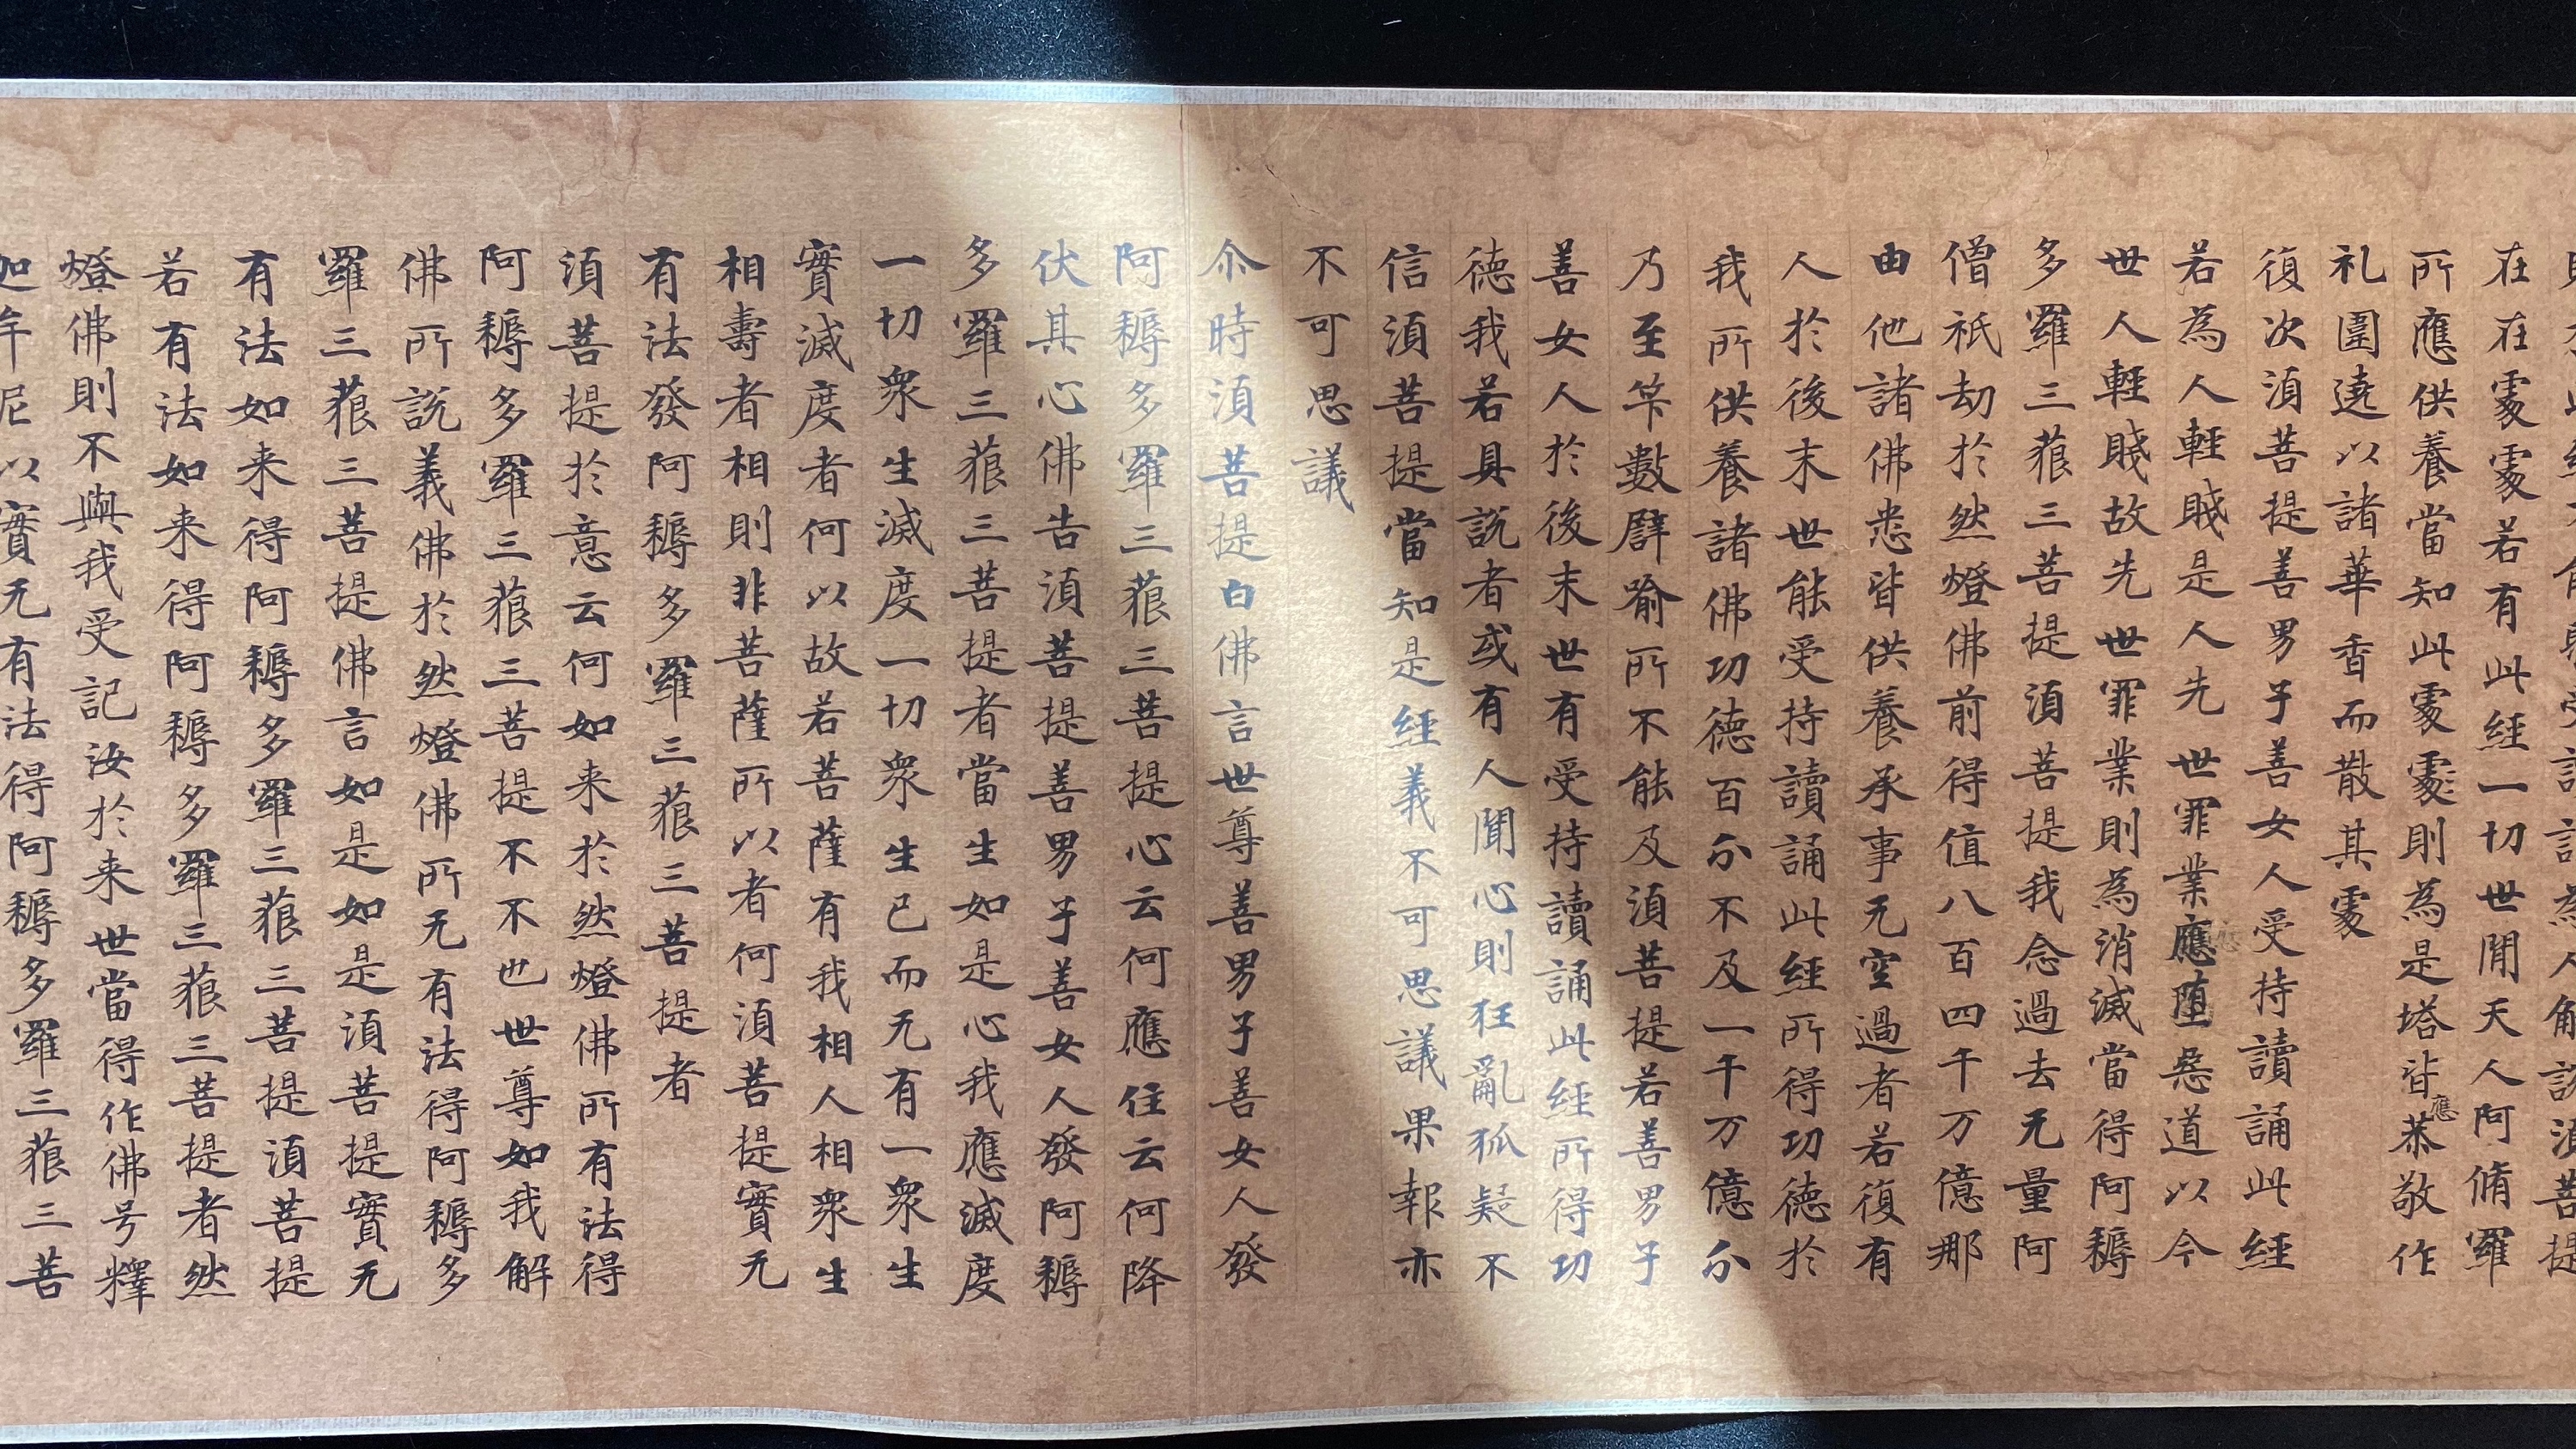 在在處處若有此經一切世閒天人阿脩羅
所應供養當知此處處則為是塔皆應恭敬作
礼圍遶以諸華香而散其處
復次須菩提善男子善女人受持讀誦此經
若為人輕賤是人先世罪業應墮惡道以今
世人輕賤故先世罪業則為消滅當得阿耨
多羅三藐三菩提須菩提我念過去无量阿
僧祇劫於然燈佛前得值八百四千万億那
由他諸佛悉皆供養承事无空過者若復有
人於後末世能受持讀誦此經所得功德於
我所供養諸佛功德百分不及一千万億分
乃至筭數譬喻所不能及須菩提若善男子
善女人於後末世有受持讀誦此經所得功
德我若具說者或有人聞心則狂亂狐疑不
信須菩提當知是經義不可思議果報亦
不可思議
尒時須菩提白佛言世尊善男子善女人發
阿耨多羅三藐三菩提心云何應住云何降
伏其心佛告須菩提善男子善女人發阿耨
多羅三藐三菩提者當生如是心我應滅度
一切眾生滅度一切眾生已而无有一眾生
實滅度者何以故若菩薩有我相人相眾生
相壽者相則非菩薩所以者何須菩提實无
有法發阿耨多羅三藐三菩提者
須菩提於意云何如来於然燈佛所有法得
阿耨多羅三藐三菩提不不也世尊如我解
佛所說義佛於然燈佛所无有法得阿耨多
羅三藐三菩提佛言如是如是須菩提實无
有法如来得阿耨多羅三藐三菩提須菩提
若有法如来得阿耨多羅三藐三菩提者然
燈佛則不與我受記汝於来世當得作佛号釋
迦牟尼以實无有法得阿耨多羅三藐三菩